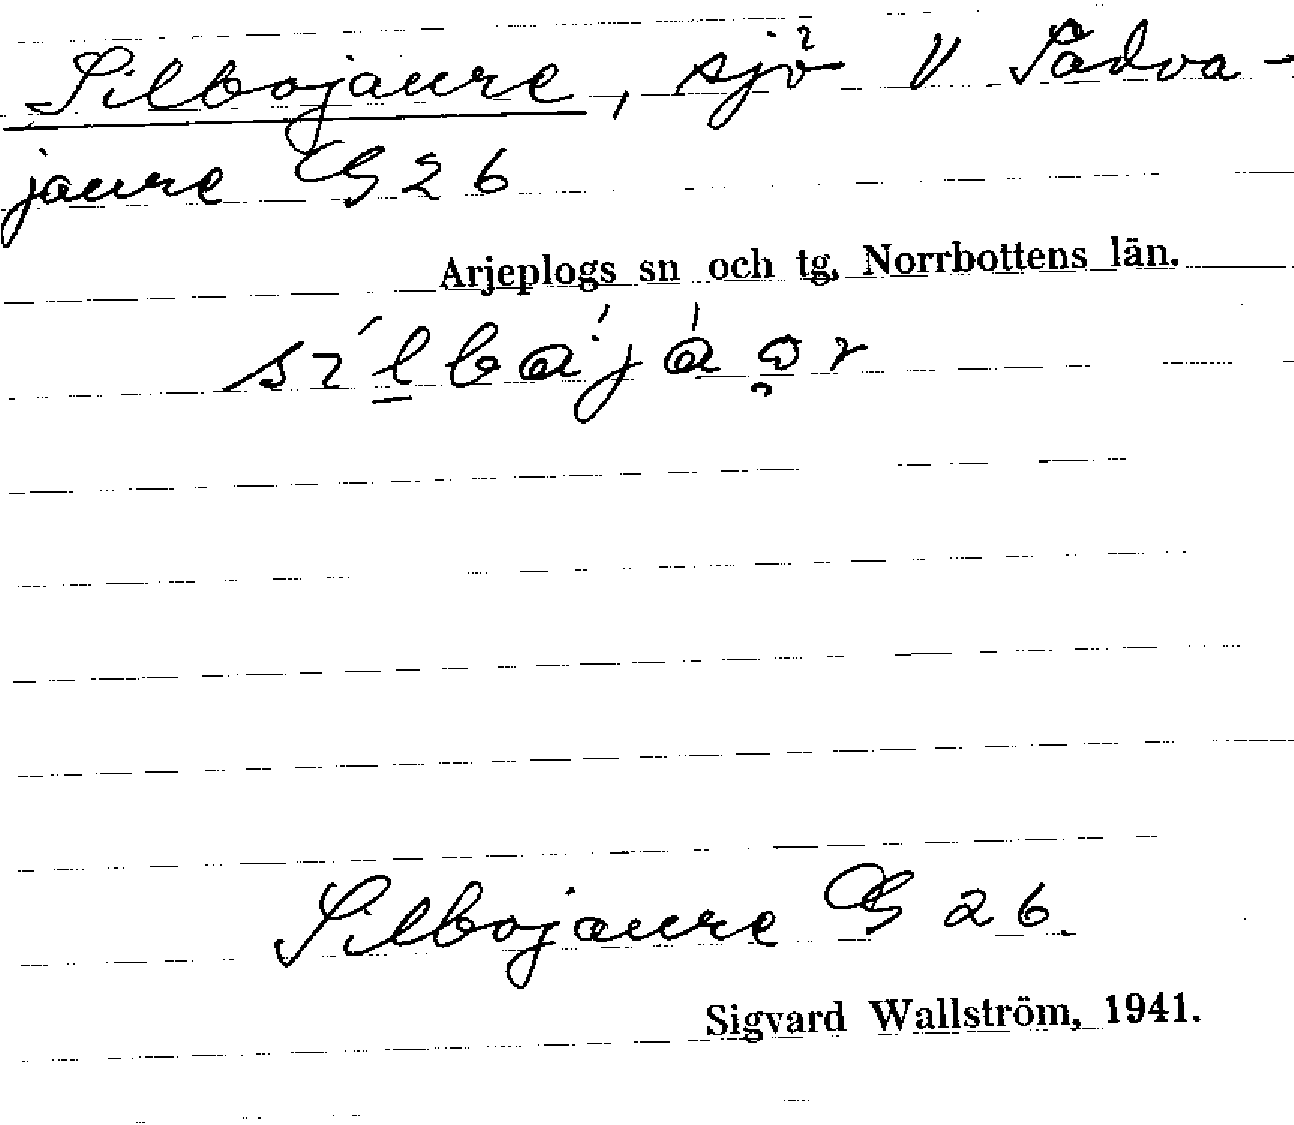 Silbojaure, sjö V Sädva-
jaure G 26
Arjeplogs sn och tg, Norrbottens län.
Silbojaure G 26.
Sigvard Wallström, 1941.